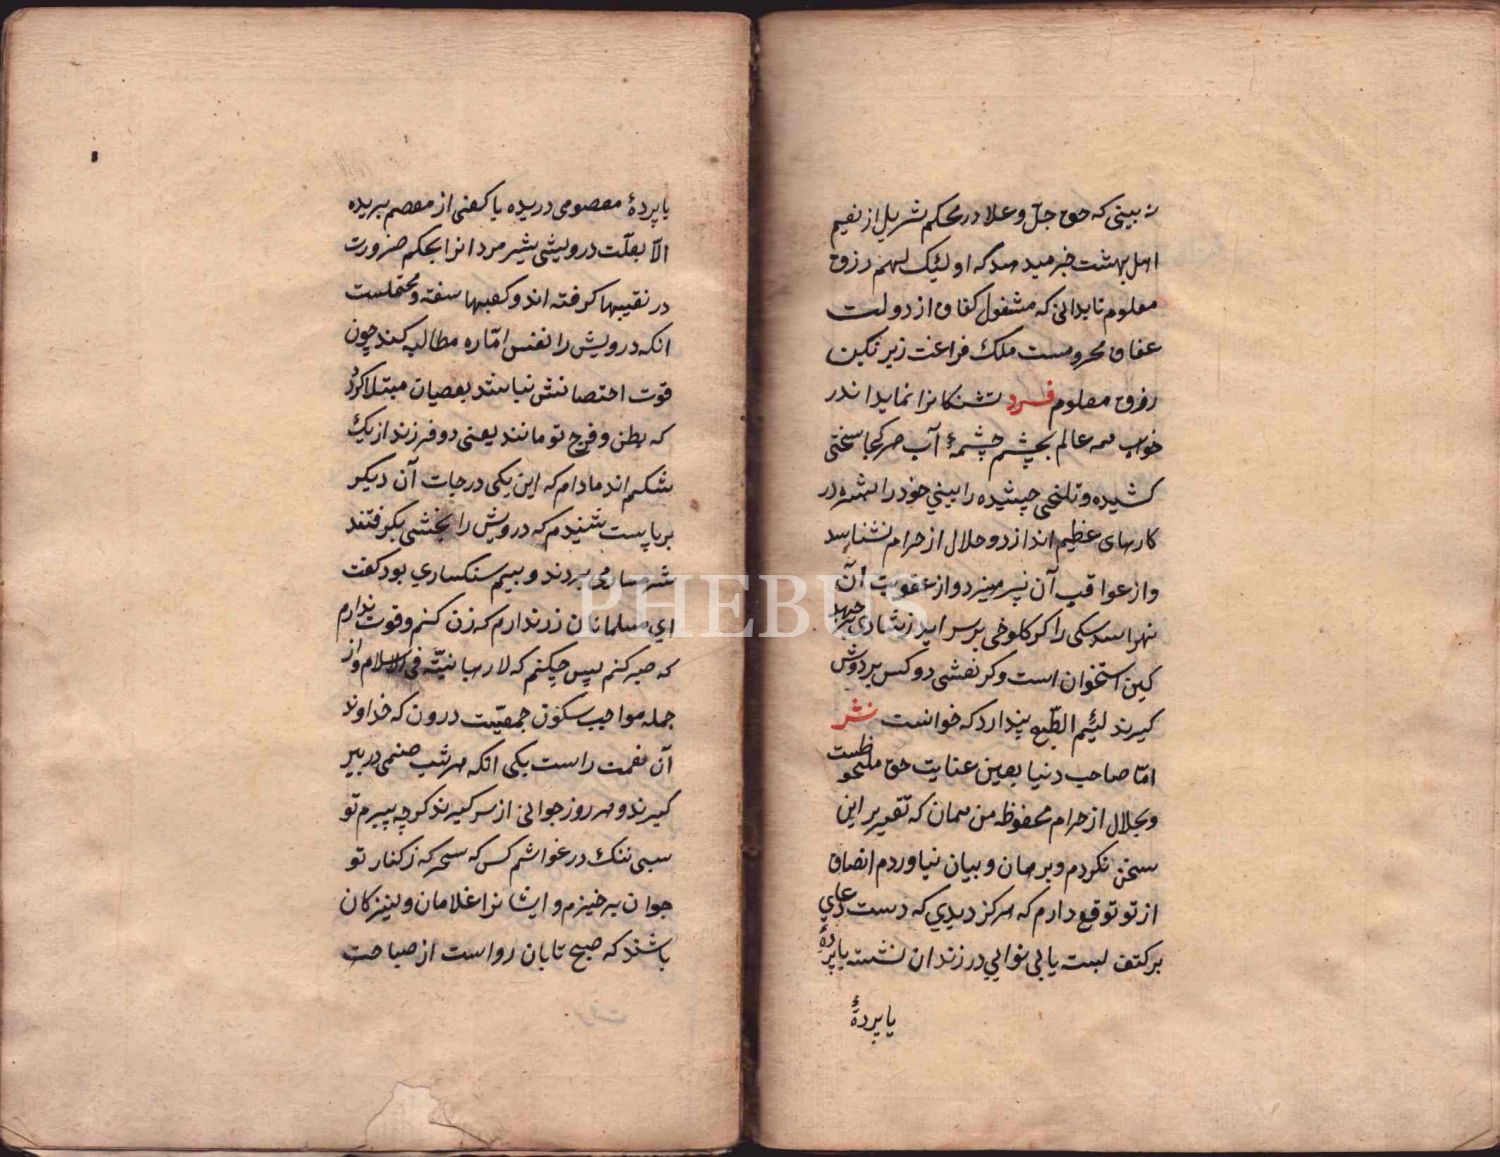 نه بینی که حق جلّ و علا در محکم تنزیل از نعیم
اهل بهشت خبر میدهد که اولئک لهم رزق
معلوم تا بدانی که مشغول کفاف از دولت
عفاف محرومست ملک فراغت زیر نگین
رزق معلوم فرد تشنکانرا نماید اندر
خواب همه عالم بچشم چشمهٔ آب هر کجا سختی
کشیده و تلخی چشیده را بینی خود را بشره در
کارهای عظیم اندازد و حلال از حرام نشناسد
و از عواقب آن نپرهیزد و از عقوبت آن
نهراسد سکی را کر کلوخی بر سر اید ز شادی بر جهد
کین استخوان است و کر نعشی دو کس بر دوش
کیرند لئیم الطبع پندارد که خوانست نثر
امّا صاحب دنیا بعین عنایت حق ملحوظست
و بحلال از حرام محفوظ من همان که تقریر این
سخن نکردم و برهان و بیان نیاوردم انصاف
از تو توقع دارم که هرکز دیدی که دست دعایی
بر کتف بسته یا بی نوایی در زندان نشسته یا پردهٔ
یا پردهٔ
یا پردهٔ معصومی دریده یا کفی از معصم بریده
الّا بعلّت درویشی شیر مردانرا بحکم ضرورت
در نقیبها کرفته اند و کعبها سفته و محتملست
انکه درویش را نفس امّاره مطالبه کند چون
قوت احتصانش نباشد بعصیان مبتلا کردد
که بطن و فرج تومانند یعنی دو فرزند از یک
شکم اند مادام که این یکی برجاست آن دیکر
برپاست شنیدم که درویش را بخشی بکرفتند
شرمساری بردند و بیم سنکساری بود کفت
ای مسلمانان زر ندارم که زن کنم و قوت ندارم
که صبر کنم پس چکنم که لا رهبانیّة فی الاسلام و از
جمله مواجب سکون جمعیّت درون که خداوند
آن نعمت راست یکی انکه هر شب صنمی در بر
کیرند و هر روز جوانی از سر کیرند کرچه پیرم تو
سبی تنک در غواشم کس که سحر که ز کنار تو
جوان بر خیزم و ایشانرا غلامان و کنیزکان
باشند که صبح تابان رواست از صباحت
PHEBUS